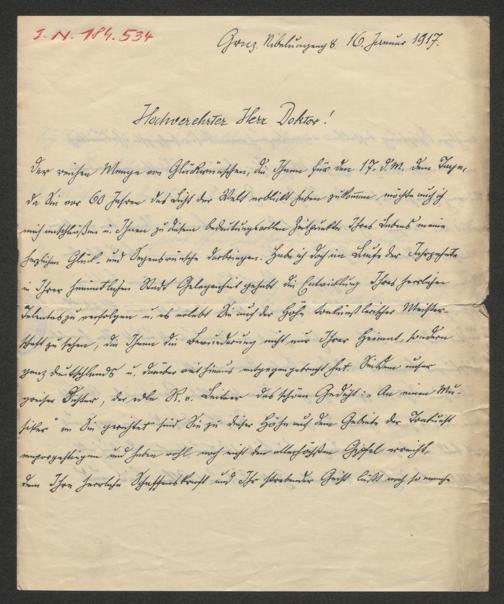 I. N. 184.534
Graz, Nibelungeng 8. 16. Januar 1917.
Hochverehrter Herr Doktor!
Der reichen Menge von Glückwünschen, die Ihnen für den 17. d. M. dem Tage,
da Sie vor 60 Jahren das Licht der Welt erblickt haben zukommen, möchte auch ich
mich anschließen u. Ihnen zu diesem bedeutungsvollen Zeitpunkte Ihres Lebens meine
herzlichen Glück- und Segenswünsche darbringen. Habe ich doch im Laufe der Jahrzehnte
in Ihrer heimatlichen Stadt Gelegenheit gehabt die Entwicklung Ihres herrlichen
Talentes zu verfolgen u. es erlebt Sie auf der Höhe künstlerischer Meister-
schaft zu sehen, die Ihnen die Bewunderung nicht nur Ihrer Heimat, sondern
ganz Deutschlands u. darüber weit hinaus entgegengebracht hat. Seitdem unser
greiser Dichter, der edle R. v. Leitner das schöne Gedicht: „An einen Mu-
siker" an Sie gerichtet sind Sie zu dieser Höhe auf dem Gebiete der Tonkunst
emporgestiegen und haben wohl noch nicht den allerhöchsten Gipfel erreicht,
denn Ihre herrliche Schaffenskraft und Ihr strebender Geist läßt noch so manche